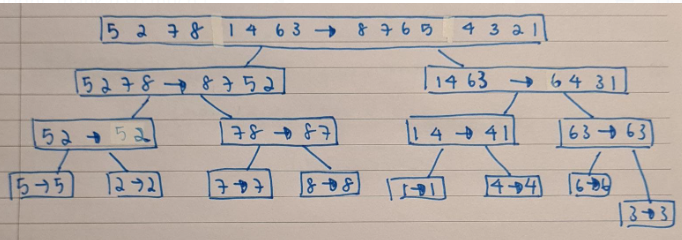 5 2 7 8 1 4 6 3 → 8 7 6 5 4 3 2 1
5 2 7 8 → 8 7 5 2
1 4 6 3 → 6 4 3 1
5 2 → 5 2
7 8 → 8 7
1 4 → 4 1
6 3 → 6 3
5 → 5
2 → 2
7 → 7
8 → 8
1 → 1
4 → 4
6 → 6
3 → 3